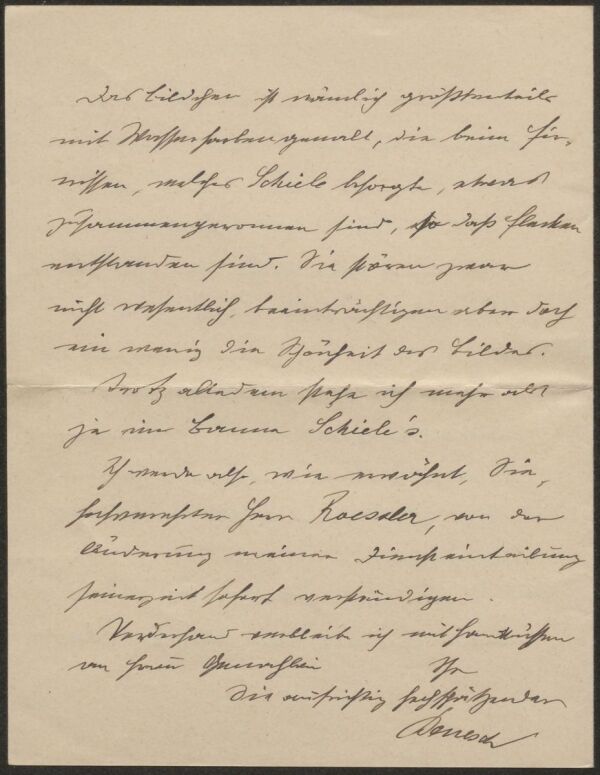 Das Bildchen ist nämlich größtenteils
mit Wasserfarben gemalt, die beim Fir-
nissen, welches Schiele besorgte, etwas
zusammengeronnen sind, so daß Flecken
entstanden sind. Sie stören zwar
nicht wesentlich, beeinträchtigen aber doch
ein wenig die Schönheit des Bildes.
Trotz alledem stehe ich mehr als
je im Banne Schiele's.
Ich werde also, wie erwähnt, Sie,
hochverehrter Herr Roessler, von der
Änderung meiner Diensteinteilung
seinerzeit sofort verständigen.
Vorderhand verbleibe ich mit Handküssen
an Frau Gemahlin Ihr
Sie aufrichtig hochschätzender